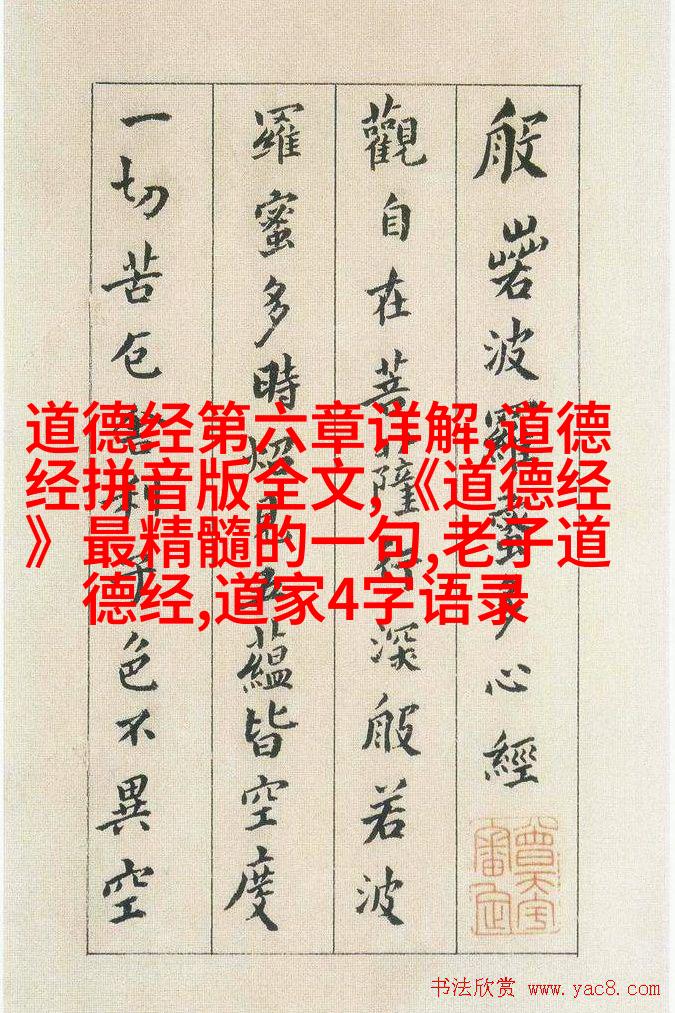 般若波羅蜜多心經
觀自在菩薩行深般若波
羅蜜多時照見五蘊皆空度
一切苦厄舍利子色不異空
道德经第六章详解,道德
经拼音版全文,《道德经
》最精髓的一句,老子道
德经,道家4字语录
书法欣赏 www.yac8.com